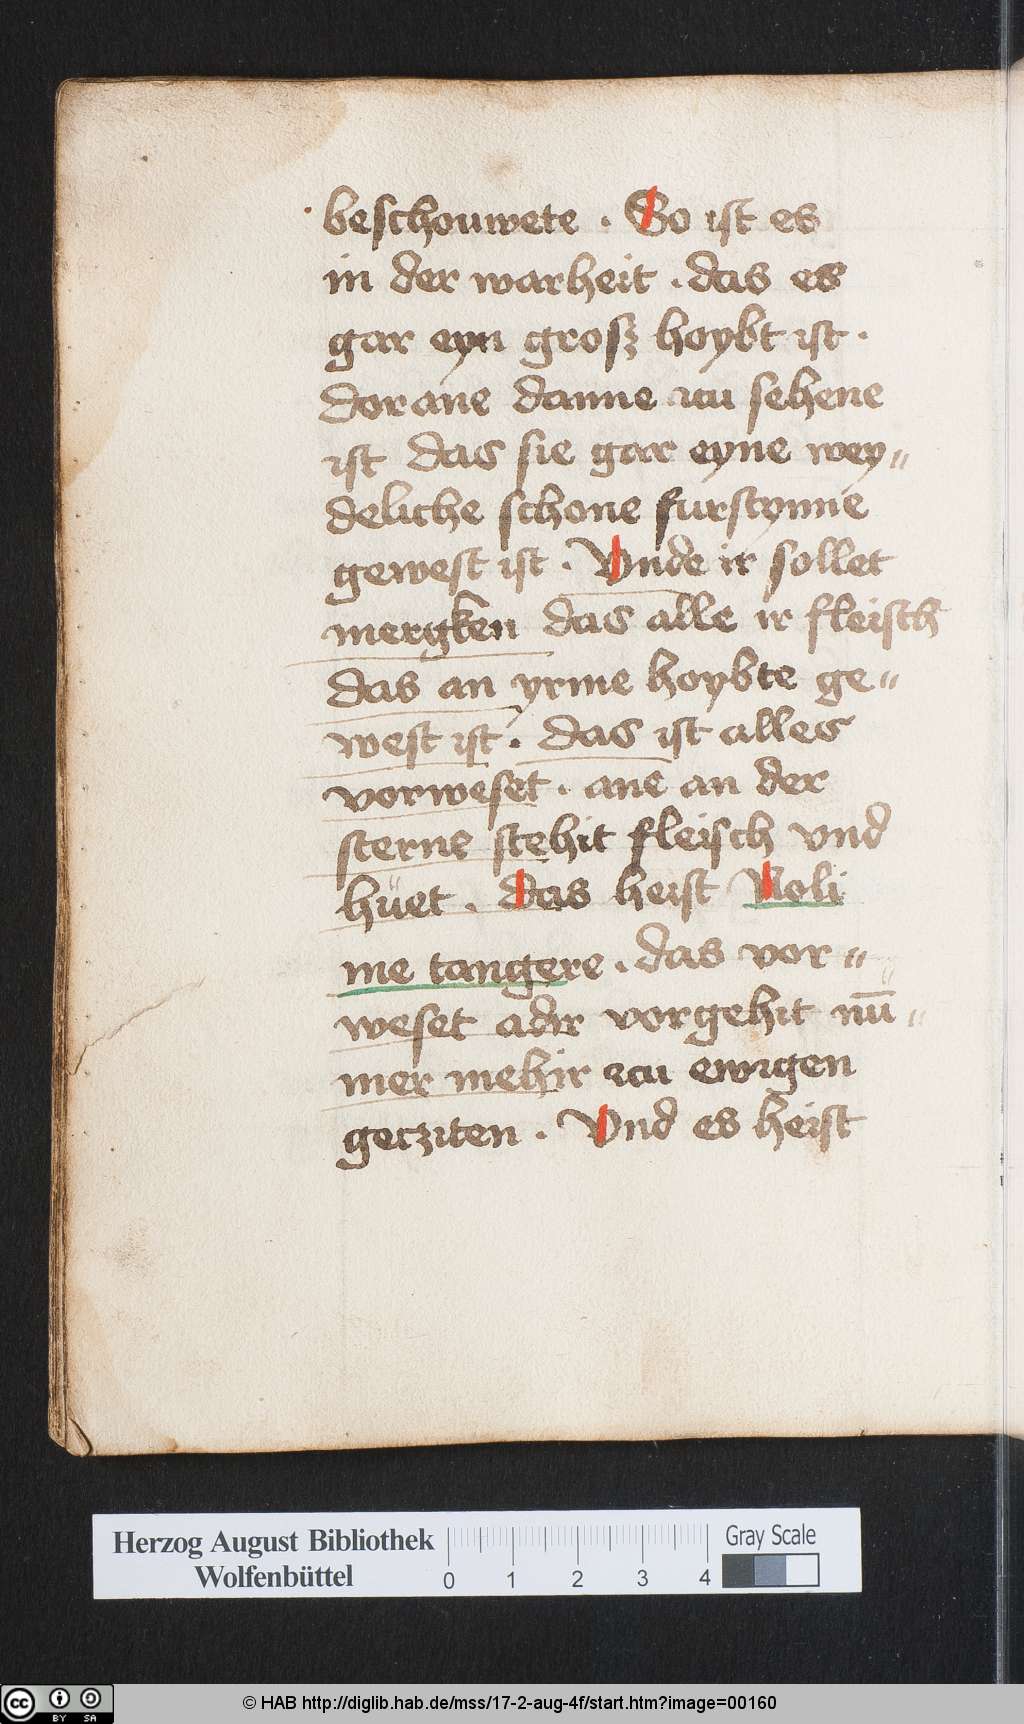 beschouwete . So ist es
in der warheit . das es
gar eyn grosz hoybt ist .
dor ane danne zcu sehene
ist das sie gar eyne wey„
deliche schone furstynne
gewest ist . Vnde ir sollet
mergken das alle ir fleisch
das an yrme hoybte ge„
west ist . das ist alles
vorweset . ane an der
sterne stehit fleisch vnd
hüet . das heist Noli
me tangere . das vor„
weset adir vorgehit nu̅„
mer mehir zcu ewigen
gecziten . Vnd es heist
Herzog August Bibliothek
Wolfenbüttel
0 1 2 3 4
Gray Scale
cc BY SA
© HAB http://diglib.hab.de/mss/17-2-aug-4f/start.htm?image=00160